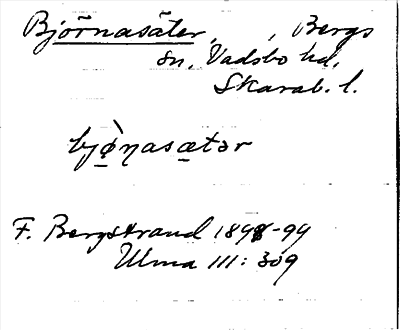 Björnasäter, , Bergs
sn, Vadsbo hd,
Skarab. l.
bjø̀ṇasætər
F. Bergstrand 1898-99
Ulma 111: 309